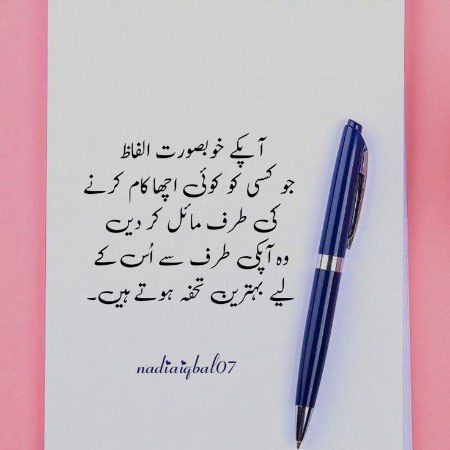 آپکے خوبصورت الفاظ
جو کسی کو کوئی اچھا کام کرنے
کی طرف مائل کر دیں
وہ آپکی طرف سے اُس کے
لیے بہترین تحفہ ہوتے ہیں۔
nadiaiqbal07